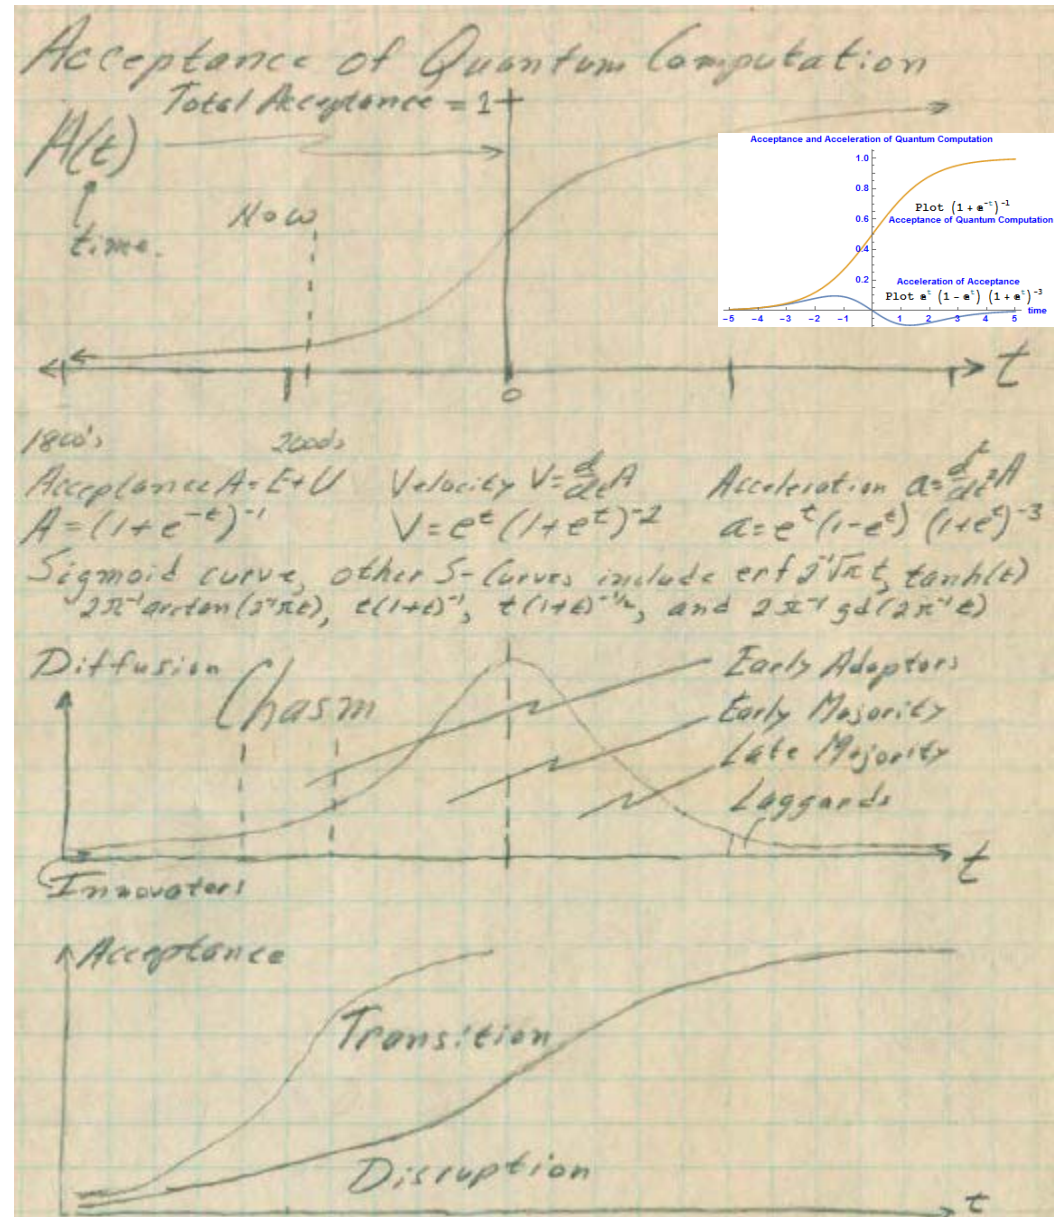 Acceptance of Quantum Computation
Total Acceptance = 1
A(t)
time.
Now
t
0
1800's 2000's
Acceptance and Acceleration of Quantum Computation
1.0
0.8
Plot (1 + e^-t)^-1
0.6
Acceptance of Quantum Computation
0.4
0.2
Acceleration of Acceptance
Plot e^t (1 - e^t) (1 + e^t)^-3
time
-5 -4 -3 -2 -1 1 2 3 4 5
Acceptance A = E+U Velocity V = d/dt A Acceleration a = d²/dt² A
A = (1+e^-t)^-1 V = e^t (1+e^t)^-2 a = e^t (1-e^t) (1+e^t)^-3
Sigmoid curve, other S-Curves include erf 2^-1 √π t, tanh(t)
2π^-1 arctan(2^-1 πt), t(1+t)^-1, t(1+t)^-1/2, and 2π^-1 gd(2π^-1 t)
Diffusion
Chasm
Early Adoptors
Early Majority
Late Majority
Laggards
t
Innovators
Acceptance
Transition
Disruption
t